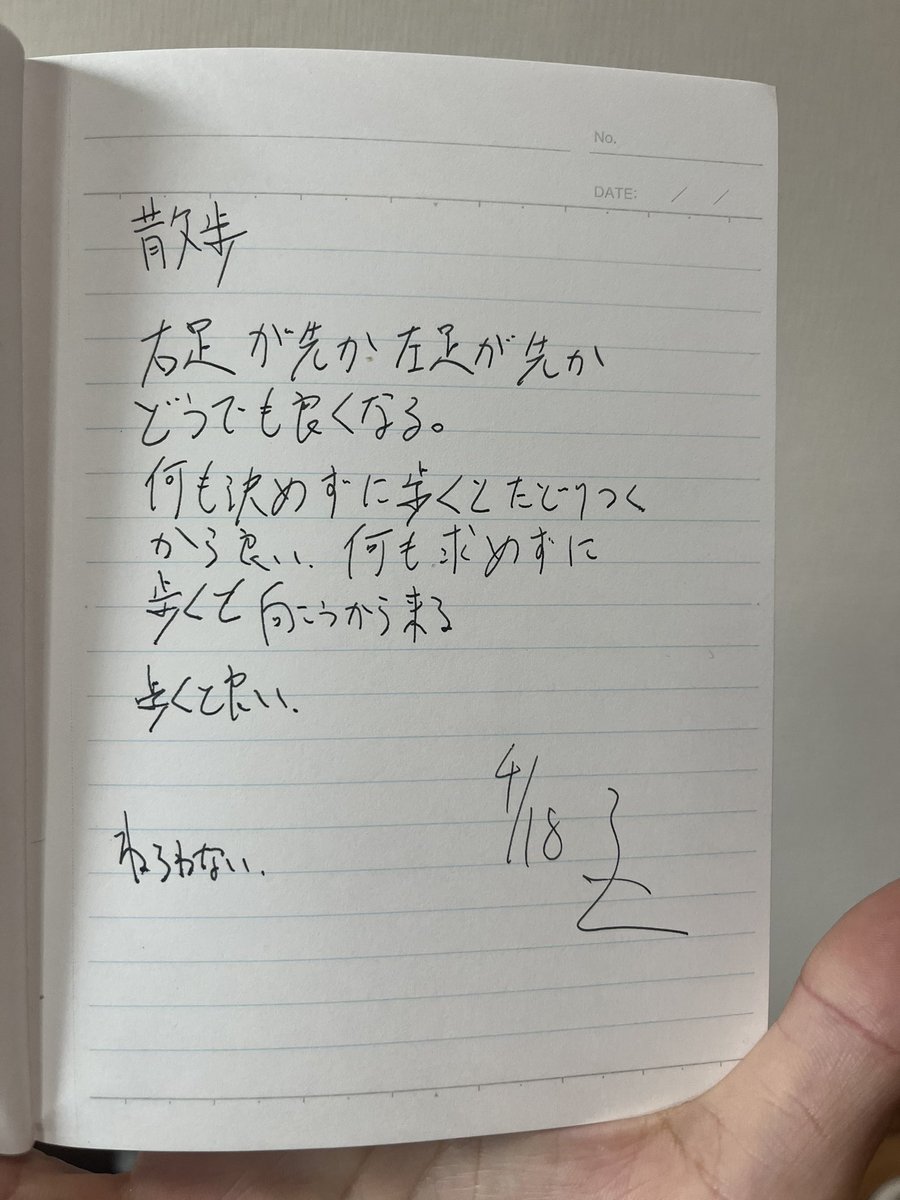 No.
DATE: / /
散歩
右足が先か左足が先か
どうでも良くなる。
何も決めずに歩くとたどりつく
から良い、何も求めずに
歩くと向こうから来る
歩くと良い、
ねらわない、
4/18